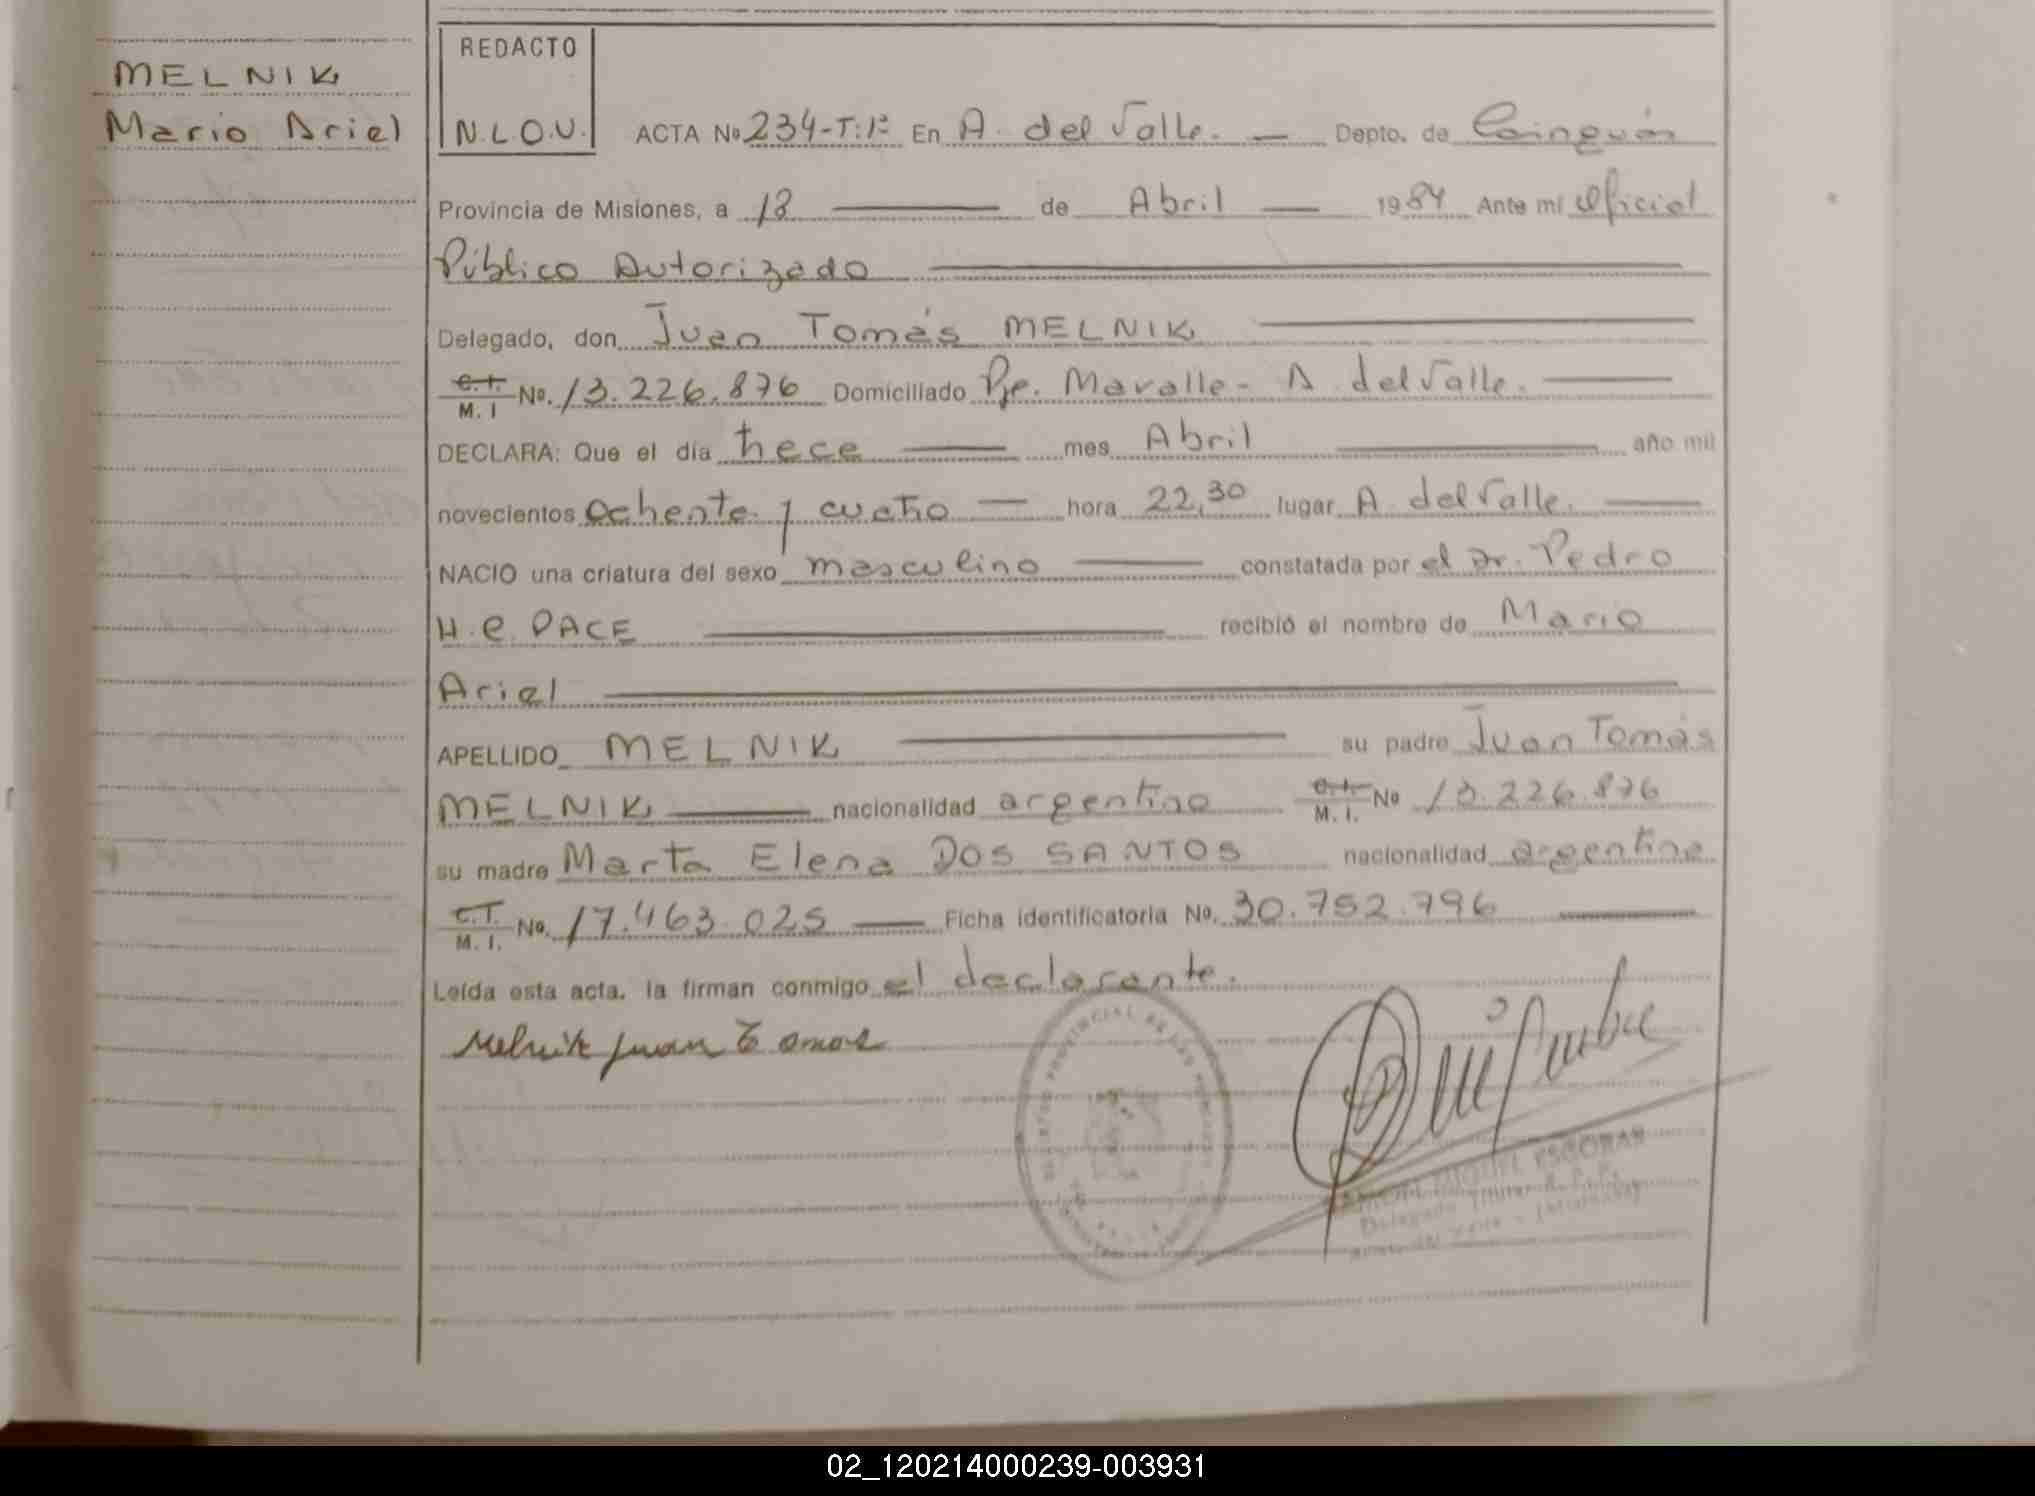 MELNIK
Mario Ariel
REDACTO
N.L.O.V.
ACTA Nº 234-T:1º En A. del Valle. — Depto. de Cainguás
Provincia de Misiones, a 18 — de Abril — 1984 Ante mí Oficial
Público Autorizado —
Delegado, don Juan Tomás MELNIK —
C.I. M. I Nº. 13.226.876 Domiciliado Pje. Mavalle - A. del Valle. —
DECLARA: Que el día trece — mes Abril — año mil
novecientos ochenta y cuatro — hora 22,30 lugar A. del Valle. —
NACIO una criatura del sexo masculino — constatada por el Dr. Pedro
H. C. PACE — recibió el nombre de Mario
Ariel —
APELLIDO MELNIK — su padre Juan Tomás
MELNIK — nacionalidad argentino C.I. M. I. Nº 13.226.876
su madre Marta Elena DOS SANTOS nacionalidad argentina
C.I. M. I. Nº. 17.463.025 — Ficha identificatoria Nº. 30.752.796 —
Leída esta acta, la firman conmigo el declarante.
Melnik Juan Tomas
MIGUEL ESCOBAR
Delegado Titular R. P. P.
02_120214000239-003931